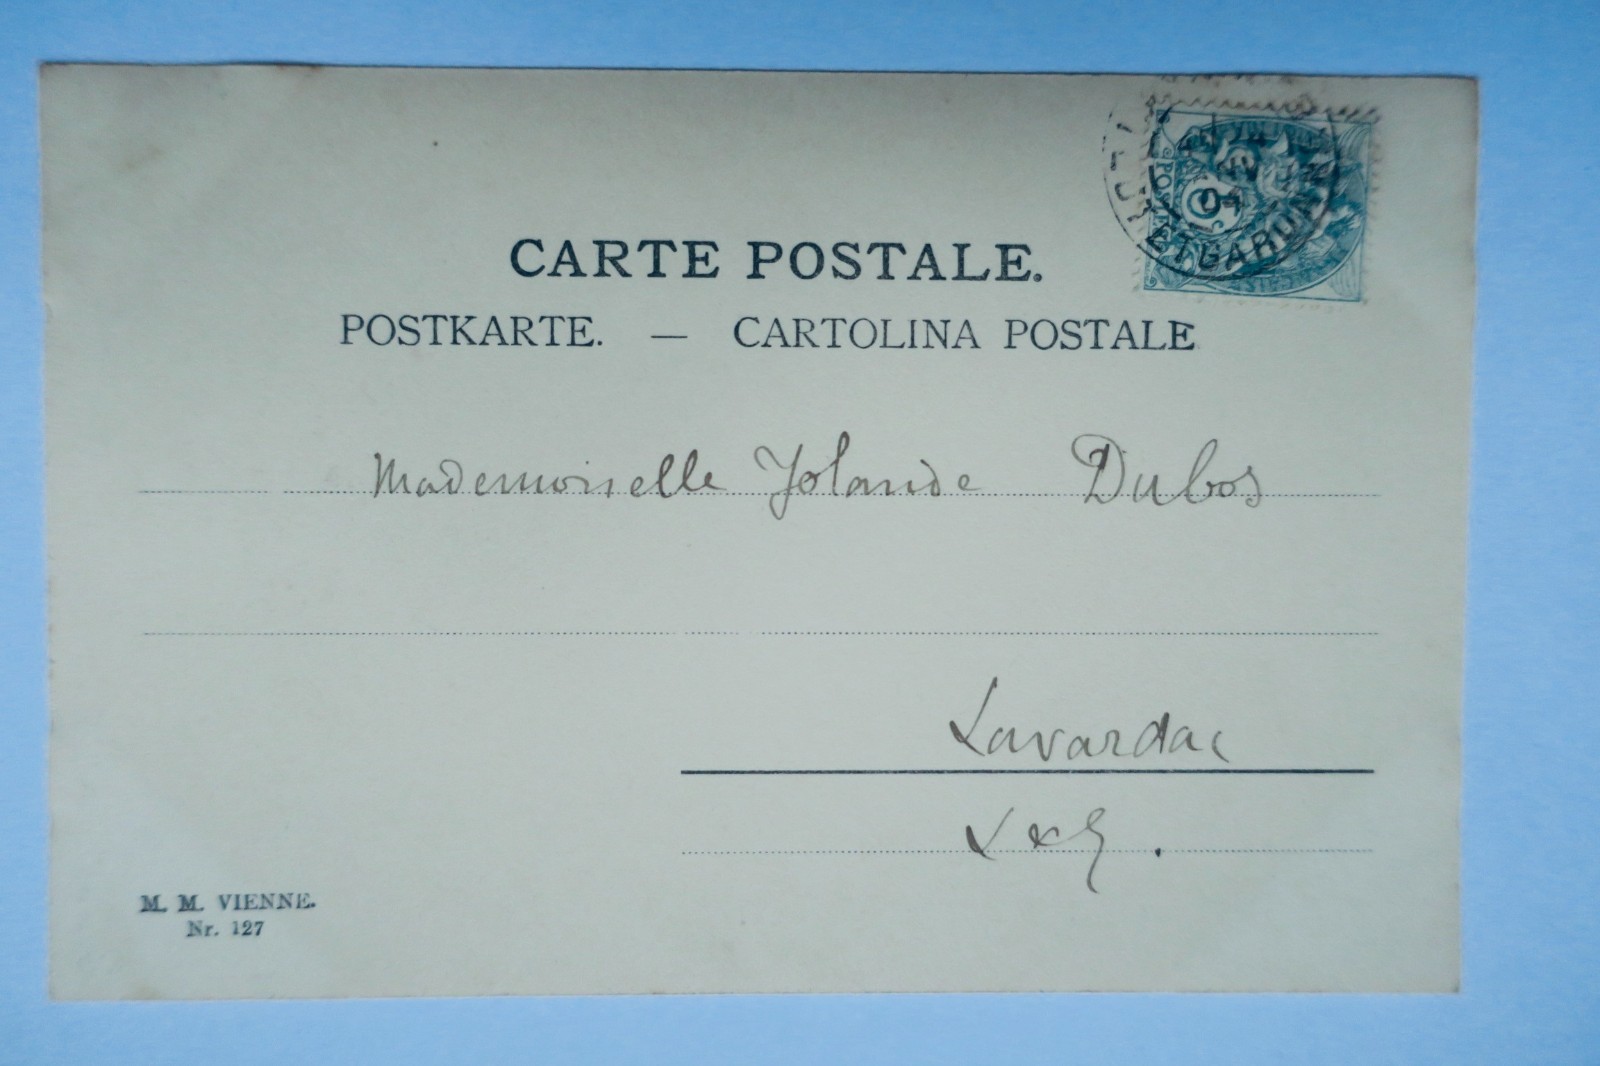 CARTE POSTALE.
POSTKARTE. — CARTOLINA POSTALE
Mademoiselle Yolande Dubos
Lavardac
L & G.
M. M. VIENNE.
Nr. 127
5
ET GARONNE